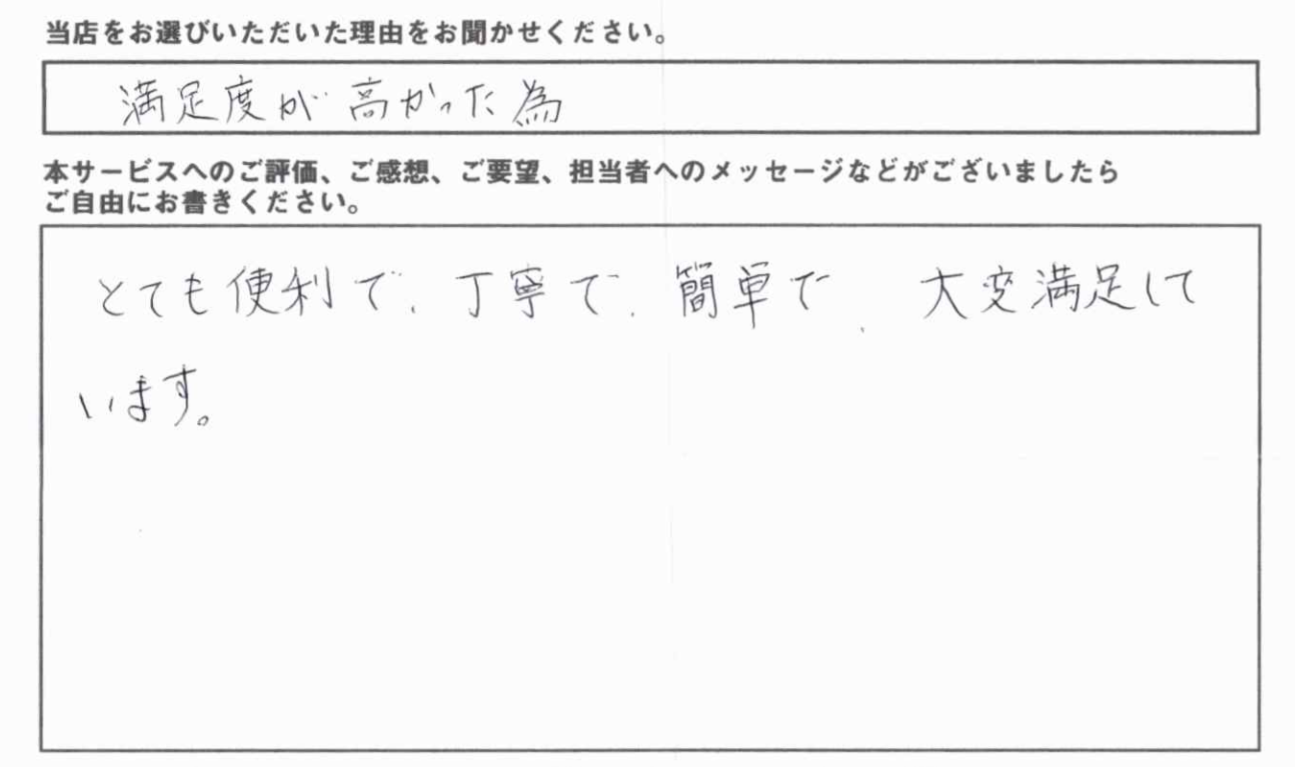 当店をお選びいただいた理由をお聞かせください。
満足度が高かった為
本サービスへのご評価、ご感想、ご要望、担当者へのメッセージなどがございましたら
ご自由にお書きください。
とても便利で、丁寧で、簡単で、大変満足して
います。